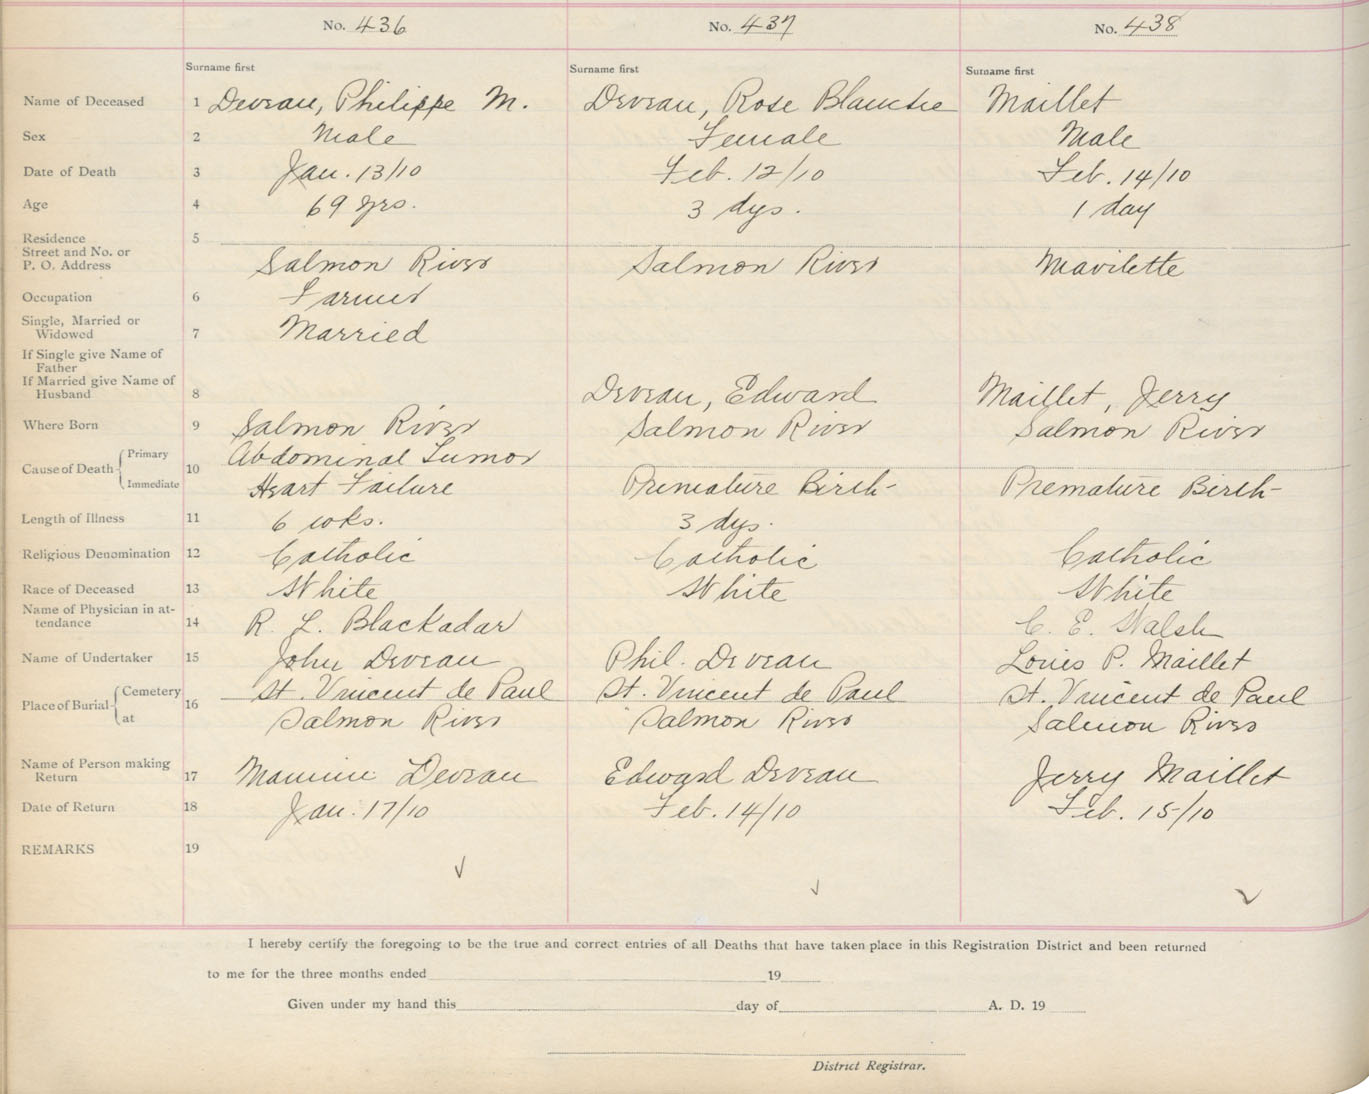 No. 436 No. 437 No. 438
Surname first Surname first Surname first
Name of Deceased 1 Deveau, Philippe M. Deveau, Rose Blanche Maillet
Sex 2 Male Female Male
Date of Death 3 Jan. 13/10 Feb. 12/10 Feb. 14/10
Age 4 69 yrs. 3 dys. 1 day
Residence 5
Street and No. or
P. O. Address Salmon River Salmon River Mavilette
Occupation 6 Farmer
Single, Married or
Widowed 7 Married
If Single give Name of
Father
If Married give Name of
Husband 8 Deveau, Edward Maillet, Jerry
Where Born 9 Salmon River Salmon River Salmon River
Cause of Death Primary 10 Abdominal Tumor
Immediate Heart Failure Premature Birth- Premature Birth-
Length of Illness 11 6 wks. 3 dys.
Religious Denomination 12 Catholic Catholic Catholic
Race of Deceased 13 White White White
Name of Physician in at-
tendance 14 R. L. Blackadar C. E. Walsh
Name of Undertaker 15 John Deveau Phil. Deveau Louis P. Maillet
Place of Burial Cemetery 16 St. Vincent de Paul St. Vincent de Paul St. Vincent de Paul
at Salmon River Salmon River Salmon River
Name of Person making
Return 17 Deveau Edward Deveau Jerry Maillet
Date of Return 18 Jan. 17/10 Feb. 14/10 Feb. 15/10
REMARKS 19
I hereby certify the foregoing to be the true and correct entries of all Deaths that have taken place in this Registration District and been returned
to me for the three months ended 19
Given under my hand this day of A. D. 19
District Registrar.